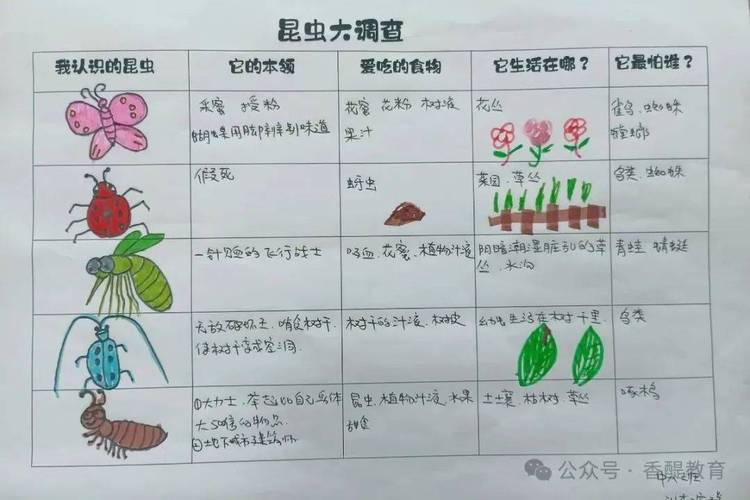 昆虫大调查
我认识的昆虫 它的本领 爱吃的食物 它生活在哪？ 它最怕谁？
采蜜 授粉
蝴蝶用脚来辨别味道
花蜜 花粉 树液
果汁
花丛
雀鸟、蜘蛛
螳螂
假死
蚜虫
菜园、草丛
鸟类、蜘蛛
一针见血的飞行战士
吸血、花蜜、植物汁液
阴暗潮湿脏乱的草
丛、水沟
青蛙 蜻蜓
无敌破坏王、啃食树干
使树干变成空洞
树干的汁液、树皮
幼虫生活在树干里
鸟类
①大力士、举起比自己身体
大50倍的物品
②地下城市建筑师
昆虫、植物汁液、水果
甜食
土壤、枯树、草丛
啄木鸟
公众号·香醍教育